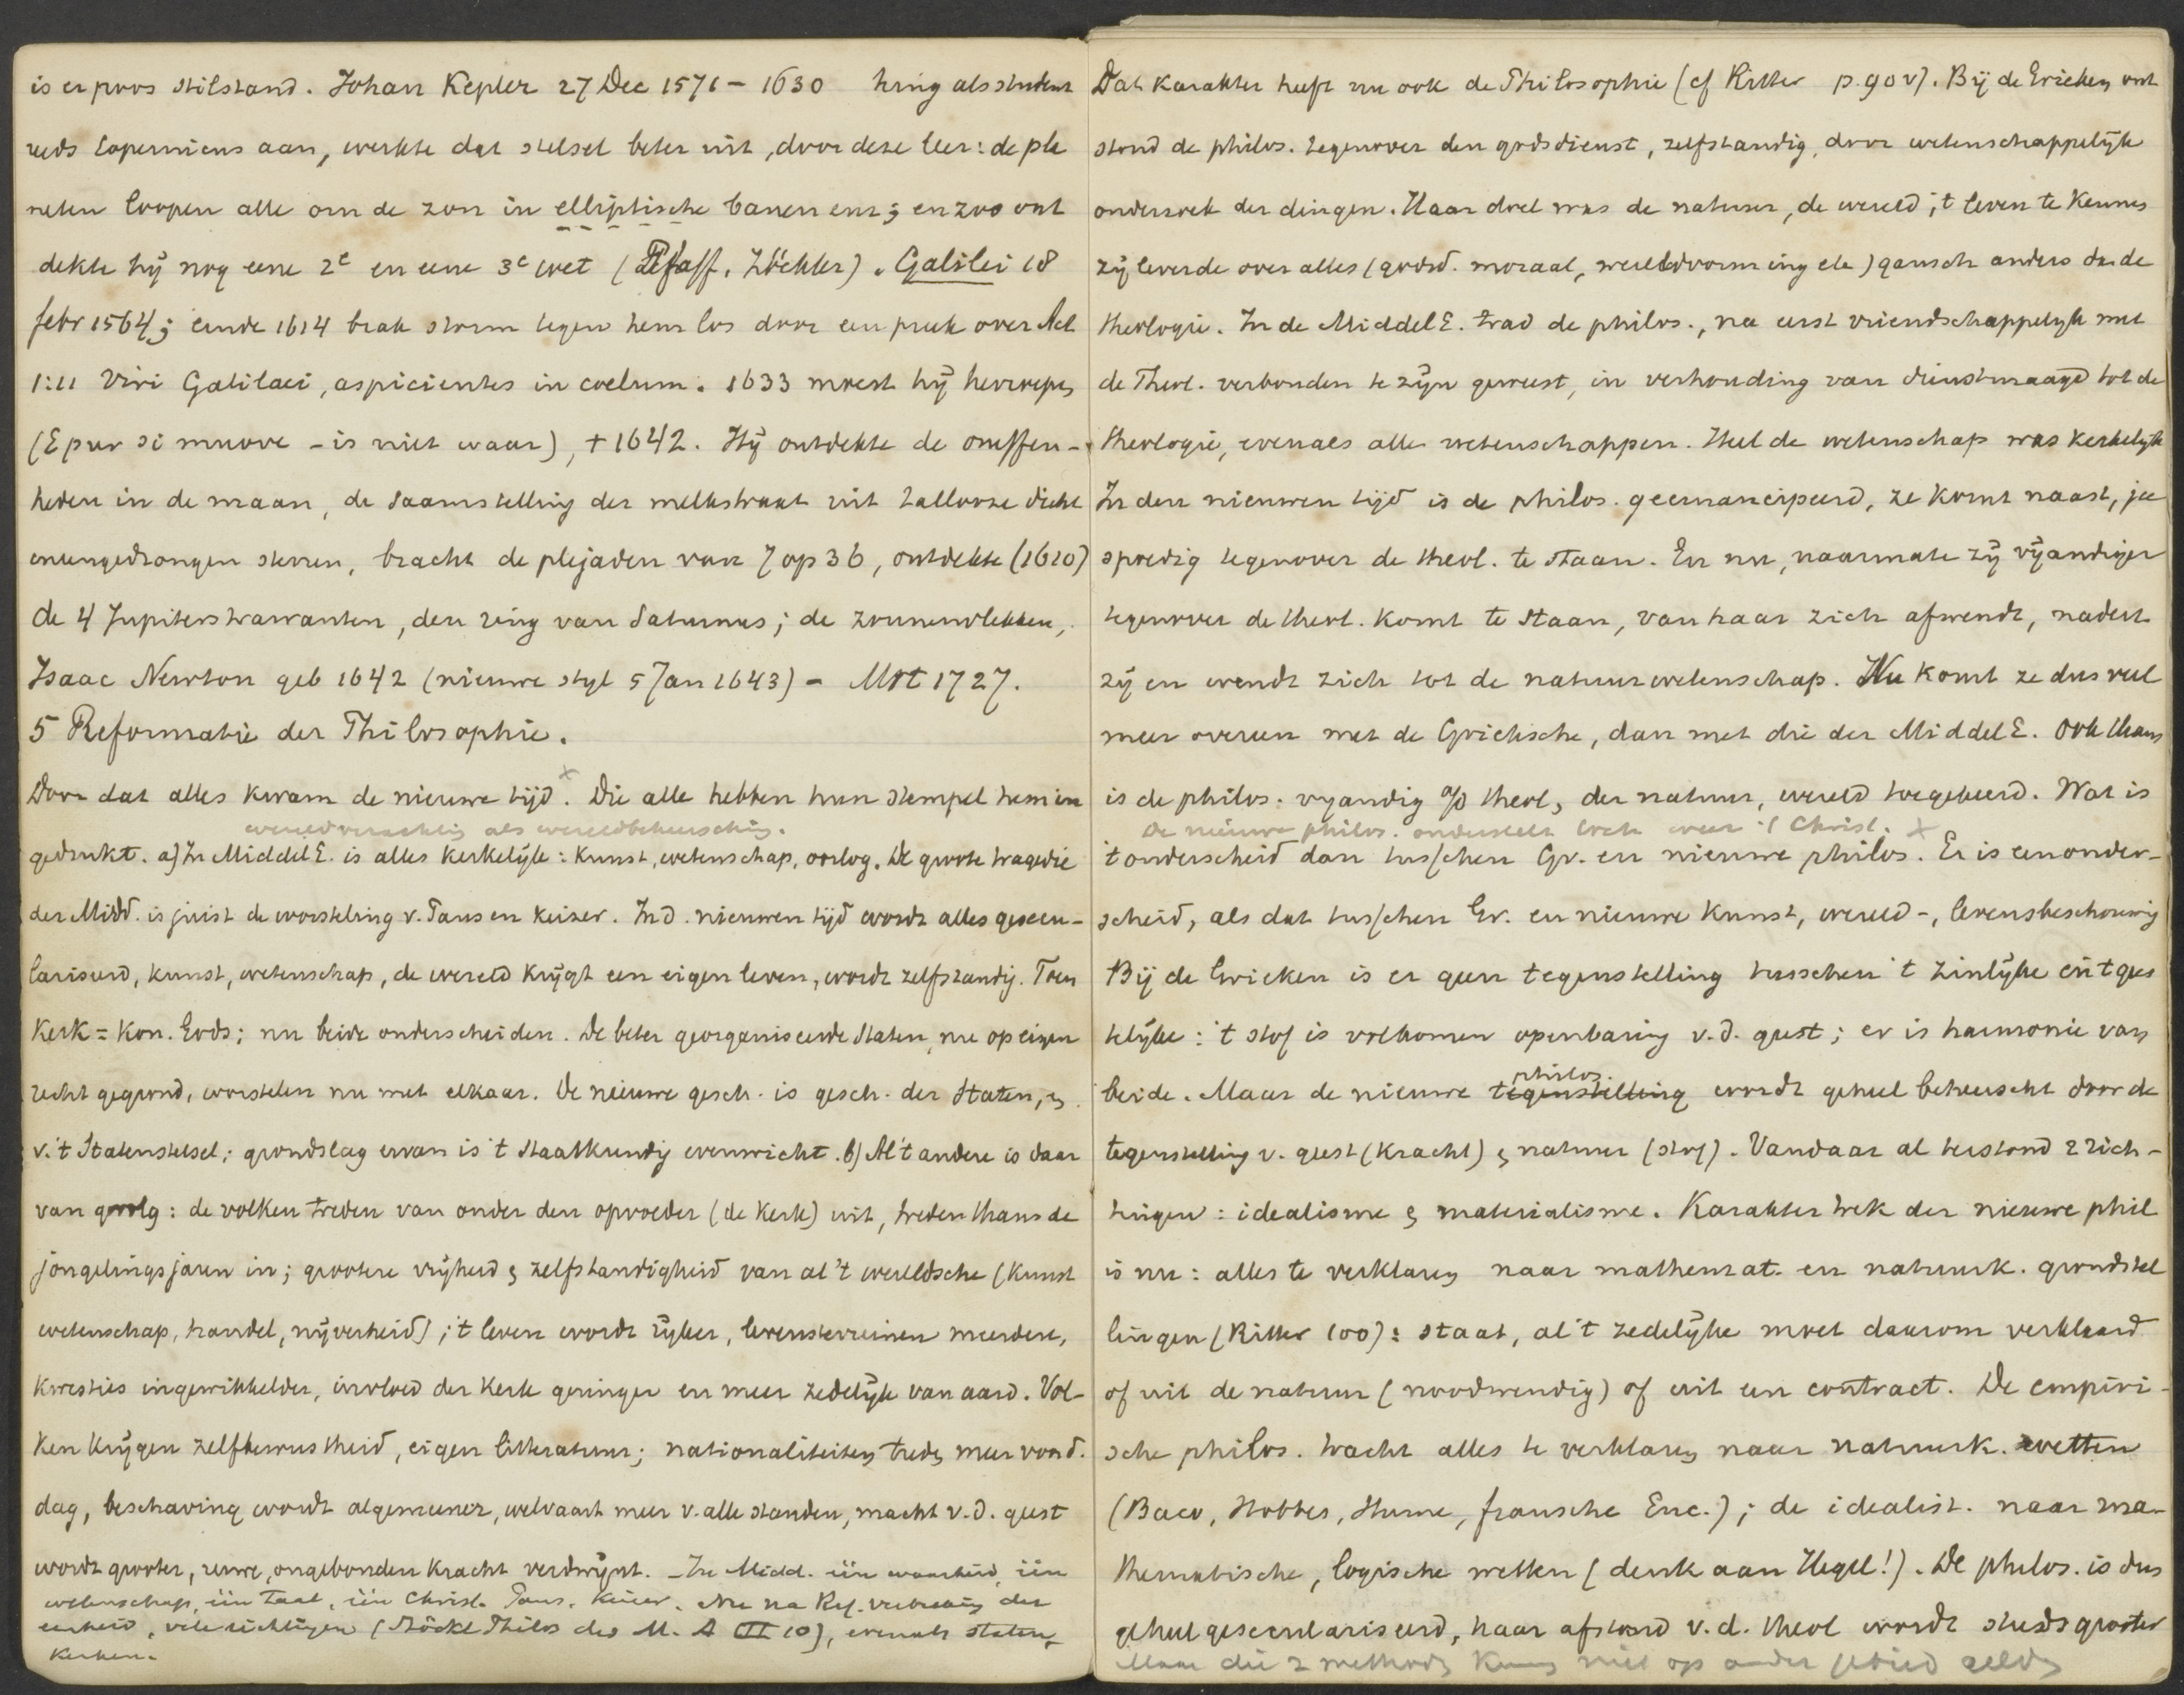 is er poos stilstand. Johan Kepler 27 Dec 1571 - 1630 hing als student
reeds Copernicus aan, werkte dat stelsel beter uit, door deze leer: de pla
neten loopen alle om de zon in elliptische banen enz; en zoo ont
dekte hij nog eene 2e en eene 3e wet (Pfaff, Zöckler). Galilei 18
febr 1564; einde 1614 brak storm tegen hem los door een preek over Act
1:11 Viri Galilaei, aspicientes in coelum. 1633 moest hij herroepen
(E pur si muove - is niet waar), + 1642. Hij ontdekte de oneffen-
heden in de maan, de saamstelling der melkstraat uit tallooze dicht
eneengedrongen sterren, bracht de plejaden van 7 op 36, ontdekte (1610)
de 4 Jupiterstrawanten, den ring van Saturnus; de zonnenvlekken,
Isaac Newton geb 1642 (nieuwe styl 5 Jan 1643) - Mrt 1727.
5 Reformatie der Philosophie.
Door dat alles kwam de nieuwe tijd x. Die alle hebben hun stempel hem in
wereldverachting als wereldbeheersching.
gedrukt. a) In Middel E. is alles kerkelijk: kunst, wetenschap, oorlog. De groote tragedie
der Midd. is juist de worsteling v. Paus en Keizer. In d. nieuwen tijd wordt alles gesecu-
lariseerd, kunst, wetenschap, de wereld krijgt een eigen leven, wordt zelfstandig. Toen
Kerk = Kon. Gods; nu beide onderscheiden. De beter georganiseerde Staten, nu op eigen
recht gegrond, worstelen nu met elkaar. De nieuwe gesch. is gesch. der Staten, &
v. 't Statenstelsel; grondslag ervan is 't staatkundig evenwicht. b) Al 't andere is daar
van gevolg: de volken treden van onder den opvoeder (de Kerk) uit, treden thans de
jongelingsjaren in; grootere vrijheid & zelfstandigheid van al 't wereldsche (kunst
wetenschap, handel, nijverheid); 't leven wordt rijker, levensterreinen meerdere,
kwesties ingewikkelder, invloed der Kerk geringer en meer zedelijk van aard. Vol-
ken krijgen zelfbewustheid, eigen litteratuur; nationaliteiten treden meer voord.
dag, beschaving wordt algemeener, welvaart meer v. alle standen, macht v. d. geest
wordt grooter, ruwe, ongebonden kracht verdwijnt. - In Midd. één waarheid, één
wetenschap, één taal, één Christ. Paus. Keizer. Nu na Ref. verbreking der
eenheid, vele richtingen (Stöckl Philos des M. A III 10), evenals staten,
Kerken.
Dat karakter heeft nu ook de Philosophie (cf Ritter p. 90 v). Bij de Grieken ont
stond de philos. tegenover den godsdienst, zelfstandig, door wetenschappelijk
onderzoek der dingen. Haar doel was de natuur, de wereld, 't leven te kennen
zij leerde over alles (godsd. moraal, wereldvorming etc) gansch anders dan de
theologie. In de Middel E. trad de philos., na eerst vriendschappelijk met
de Theol. verbonden te zijn geweest, in verhouding van dienstmaagd tot de
theologie, evenals alle wetenschappen. Heel de wetenschap was kerkelijk
In den nieuwen tijd is de philos. geemancipeerd, ze komt naast, ja
spoedig tegenover de theol. te staan. En nu, naarmate zij vijandiger
tegenover de theol. komt te staan, van haar zich afwendt, nadert
zij en wendt zich tot de natuurwetenschap. Nu komt ze dus veel
meer overeen met de Grieksche, dan met die der Middel E. Ook thans
is de philos. vyandig a/d theol, der natuur, wereld toegekeerd. Wat is
De nieuwe philos. onderstelt toch weer 't Christ. x
't onderscheid dan tusschen Gr. en nieuwe philos. Er is een onder-
scheid, als dat tusschen Gr. en nieuwe kunst, wereld-, levensbeschouwing
Bij de Grieken is er geen tegenstelling tusschen 't zinlijke en 't gees
telijke: 't stof is volkomen openbaring v. d. geest; er is harmonie van
philos.
beide. Maar de nieuwe tegenstelling wordt geheel beheerscht door de
tegenstelling v. geest (kracht) & natuur (stof). Vandaar al terstond 2 rich-
tingen: idealisme & materialisme. Karaktertrek der nieuwe phil
is nu: alles te verklaren naar mathemat. en natuurk. grondstel
lingen (Ritter 100): staat, al 't zedelijke moet daarom verklaard
of uit de natuur (noodwendig) of uit een contract. De empiri-
sche philos. tracht alles te verklaren naar natuurk. wetten
(Baco, Hobbes, Hume, fransche Enc.); de idealist. naar ma-
thematische, logische wetten (denk aan Hegel!). De philos. is dus
geheel geseculariseerd, haar afstand v. d. theol wordt steeds grooter
Maar die 2 methoden kunnen niet op ander gebied gelden